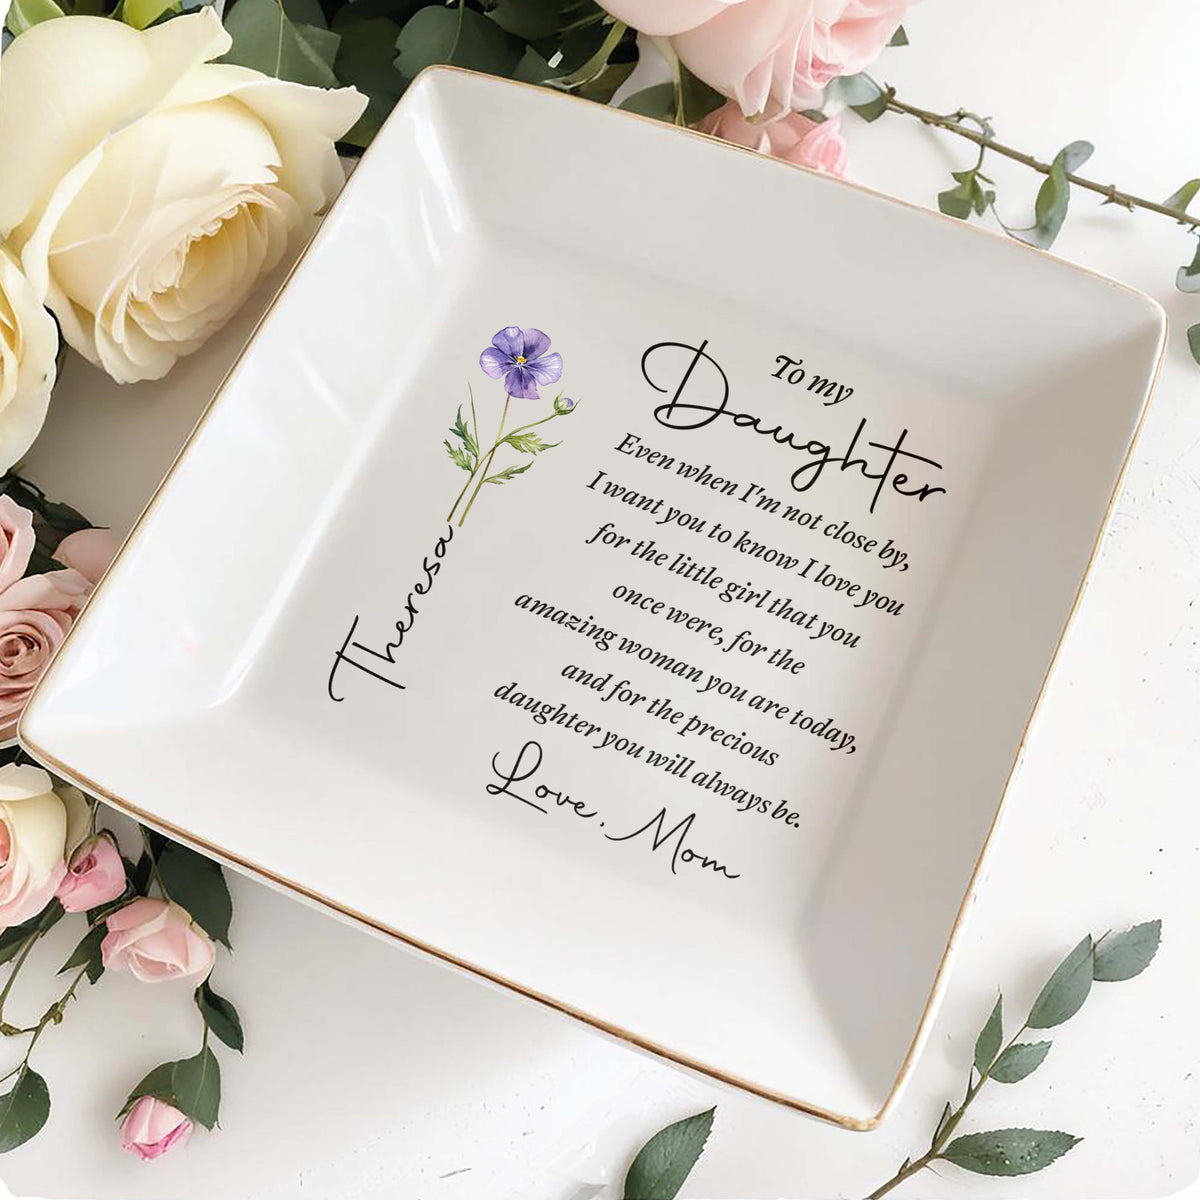 To my
Daughter
Even when I'm not close by,
I want you to know I love you
for the little girl that you
once were, for the
amazing woman you are today,
and for the precious
daughter you will always be.
Love, Mom
Theresa